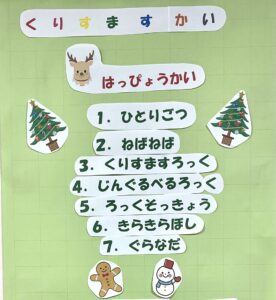 くりすますかい
はっぴょうかい
1. ひとりごつ
2. ねばねば
3. くりすますろっく
4. じんぐるべるろっく
5. ろっくそっきょう
6. きらきらぼし
7. ぐらなだ